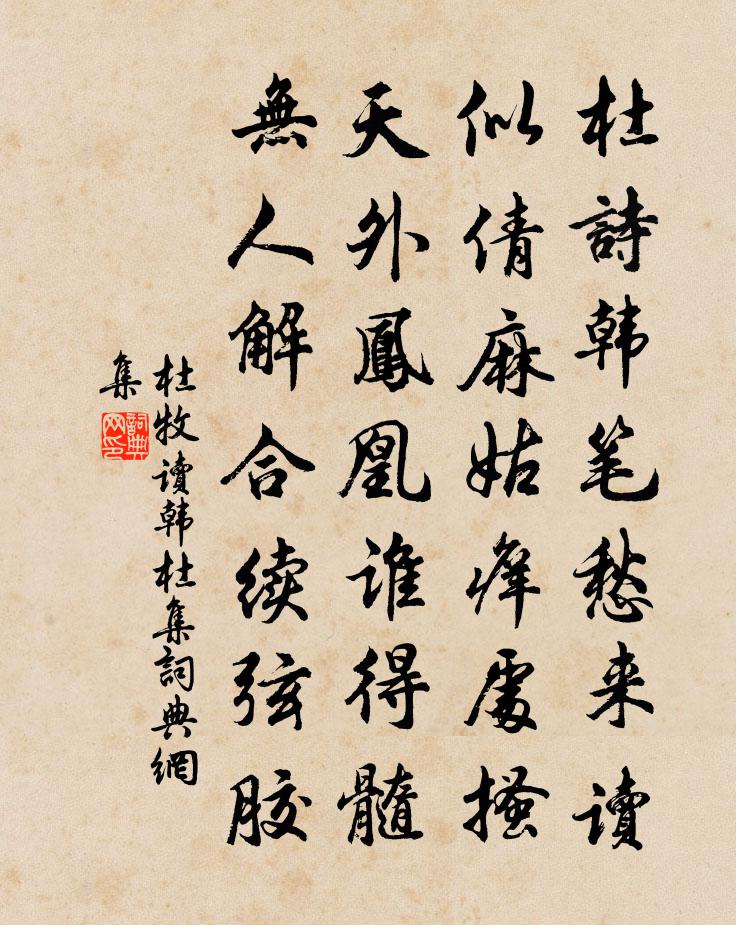 杜詩韩笔愁来读
似倩麻姑痒處搔
天外鳳凰谁得髓
無人解合续弦胶
杜牧读韩杜集詞典網
集
詞典网印